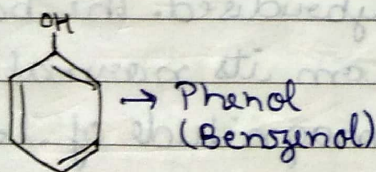 OH
→ Phenol
(Benzenol)